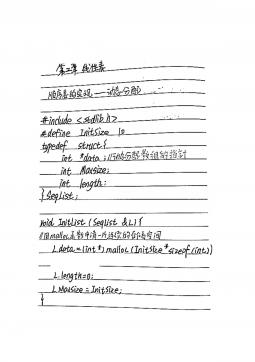 第二章 线性表
顺序表的实现——动态分配
#include <stdlib.h>
#define InitSize 10
typedef struct{
int *data; //动态分配数组的指针
int Maxsize;
int length;
} SeqList;
void InitList (SeqList &L) {
//用malloc函数申请一片连续的存储空间
L.data=(int*)malloc(InitSize*sizeof(int))
L.length=0;
L.Maxsize=InitSize;
}